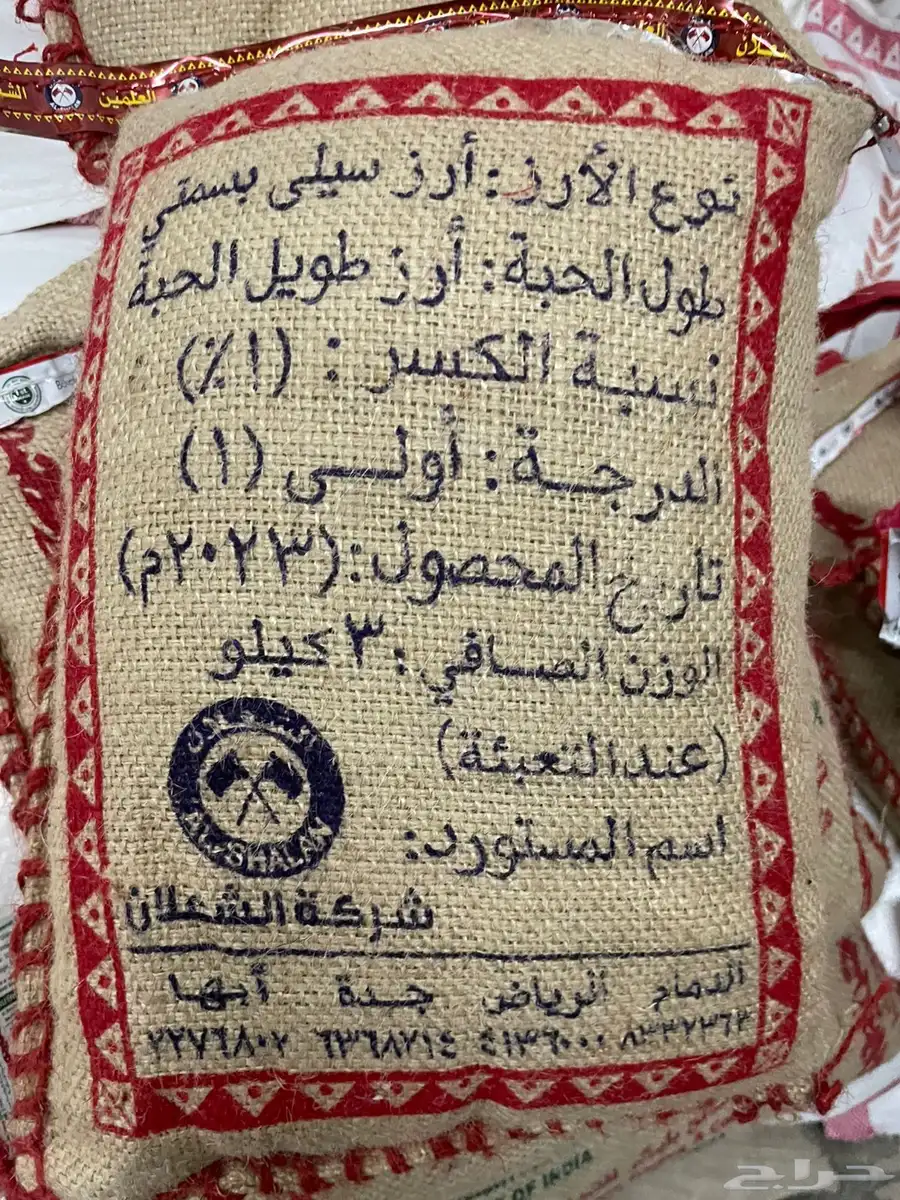 العلمين
نوع الأرز: أرز سيلي بسمتي
طول الحبة: أرز طويل الحبة
نسبة الكسر: (١٪)
الدرجة: أولى (١)
تاريخ المحصول: (٢٠٢٣م)
الوزن الصافي: ٣ كيلو
(عند التعبئة)
الشعلان
AL-SHALAN
اسم المستورد:
شركة الشعلان
الدمام الرياض جدة أبها
٨٣٣٢٣٦٣ ٤١٣٦٠٠٠ ٦٣٦٨٧١٤ ٢٢٧٦٨٠٧
OF INDIA
حراج